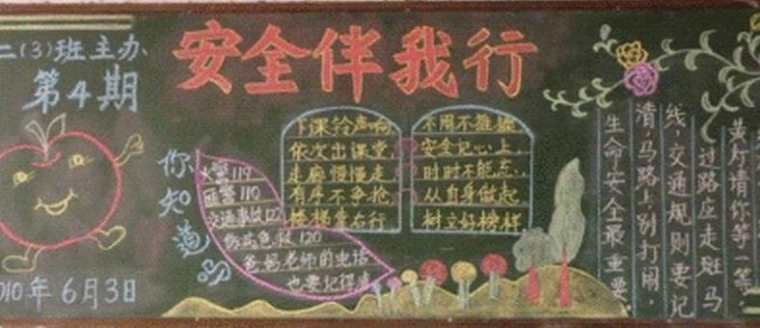 二(3)班主办
第4期
安全伴我行
2010年6月3日
你知道吗
火警119
匪警110
交通事故122
伤病急救120
爸妈老师的电话
也要记得清
下课铃声响
依次出课堂,
走廊慢慢走
有序不争抢,
楼梯靠右行
不用不推搡
安全记心上,
时时不能忘,
从自身做起
树立好榜样
黄灯请你等一等,
过路应走斑马
线,交通规则要记
清,马路上别打闹,
生命安全最重要